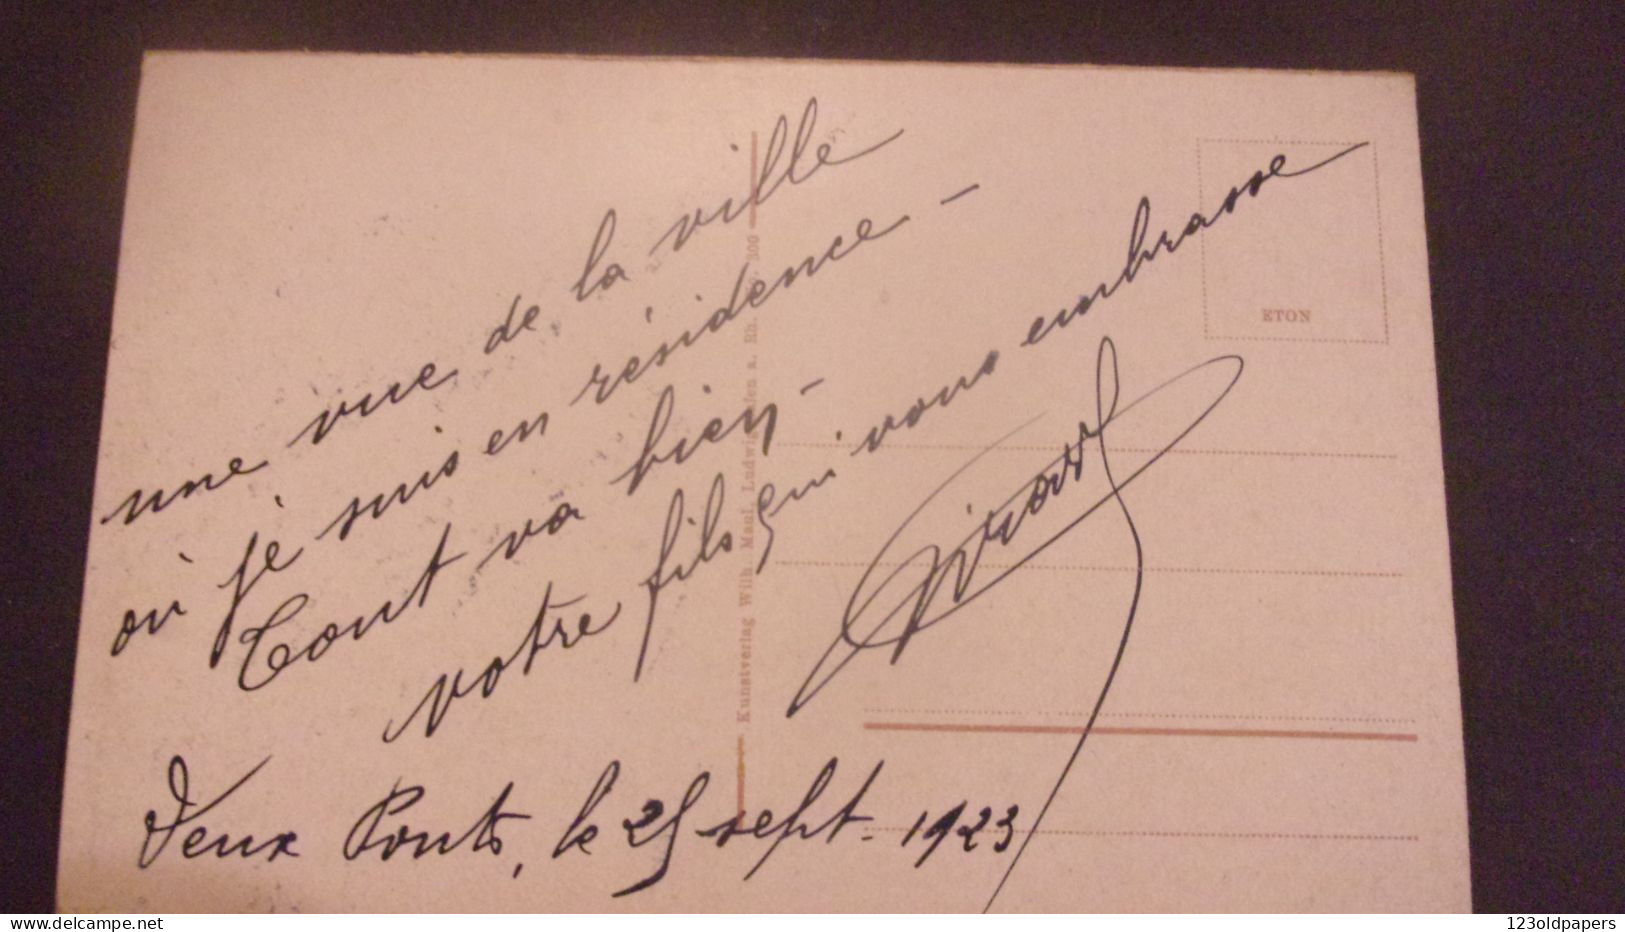 une vue de la ville
où je suis en résidence -
Tout va bien -
votre fils qui vous embrasse
Deux Ponts, le 25 sept. 1923
Kunstverlag Wilh. Maaf, Ludwig
fen a. Rh.
300
ETON
123oldpapers